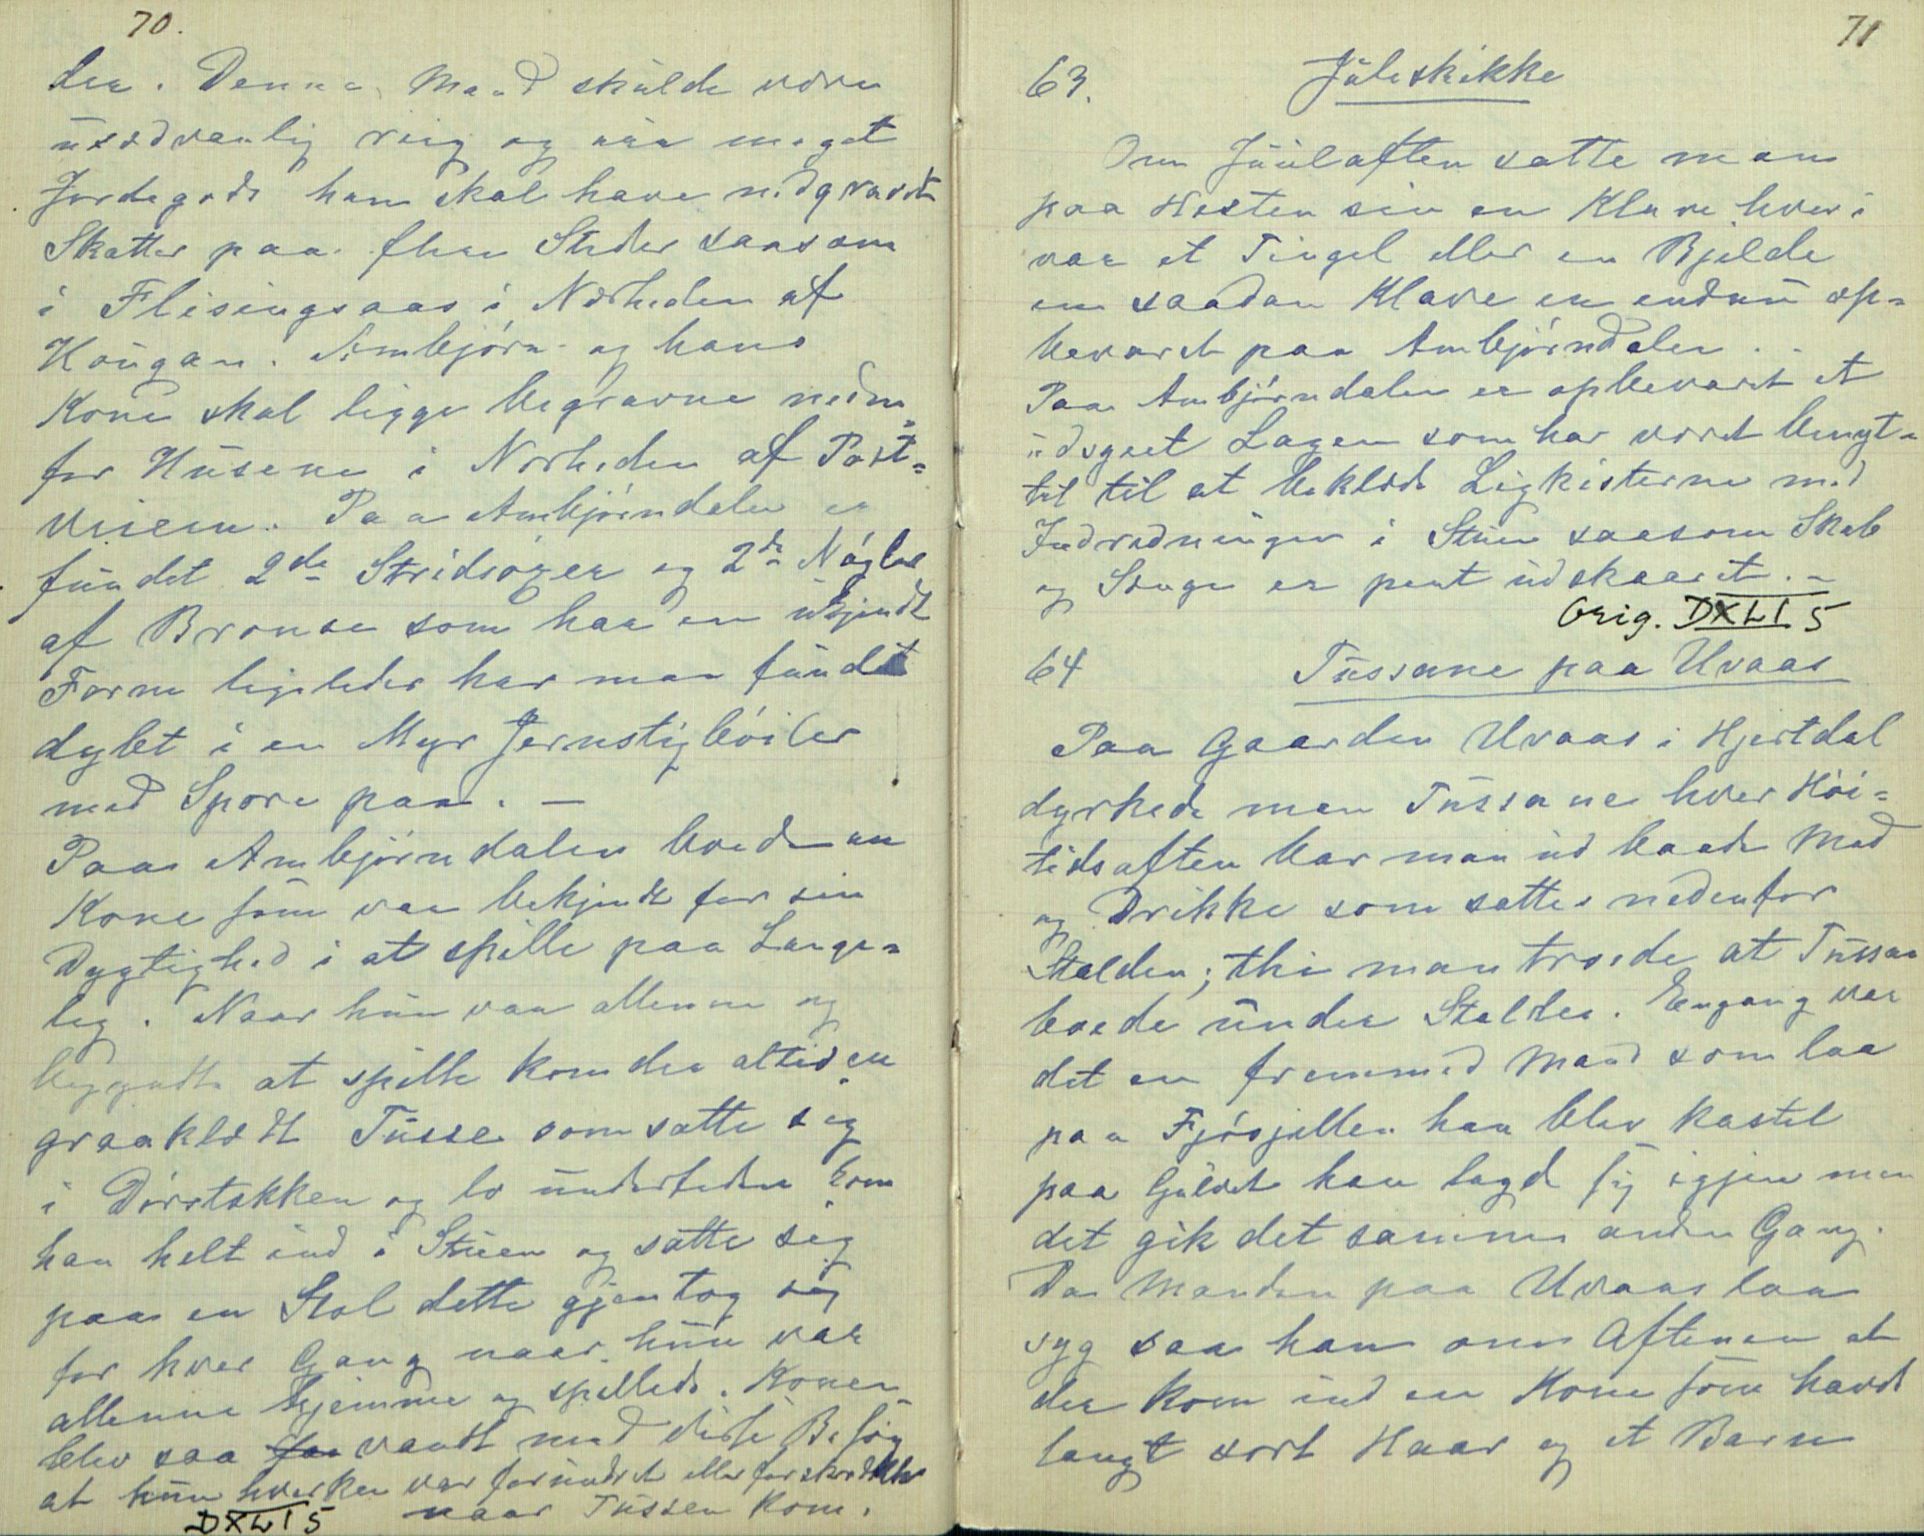 70.
der. Denne Mand skulde være
usædvanlig riig og eie meget
Jordegods han skal have nedgravet
Skatter paa flere Steder saasom
i Flisingsaas i Nærheden af
Haugan. Ambjørn og hans
Kone skal ligge begravne neden=
for Husene i Nærheden af Post=
veien. Paa Ambjørndalen er
fundet 2de Stridsøxer og 2de Nøgler
af Bronse som har en ukjendt
Form ligeledes har man fundet
dybt i en Myr Jernstigbøiler
med Spore paa. —
Paa Ambjørndalen boede en
Kone som var bekjendt for sin
Dygtighed i at spille paa Lange=
leg. Naar hun var allenne og
begyndte at spille kom der altid en
graaklædt Tusse som satte sig
i Dørstokken og lo undertiden kom
han helt ind i Stuen og satte sig
paa en Stol dette gjentog sig
for hver Gang naar hun var
allenne hjemme og spillede. Konen
blev saa vandt med disse Besøg
at hun hverken var forundret eller forskrækket
naar Tussen kom.
DXLI 5
71
63. Juleskikke
Om Juulaften satte man
paa Hesten sin en Klave hveri
var et Tingel eller en Bjelde
en saadan Klave er endnu op=
bevaret paa Ambjørndalen. .
Paa Ambjørndalen er opbevaret et
udsyet Lagen som har været benyt=
tet til at beklæde Ligkisterne med
Indredningen i Stuen saasom Skab
og Senge er pent udskaaret. —
Orig. DXLI 5
64 Tussane paa Uvaas
Paa Gaarden Uvaas i Hjertdal
dyrkede man Tussane hver Høi=
tidsaften bar man ud baade Mad
og Drikke som sattes nedenfor
Stalden; thi man troede at Tussan
boede under Stalden. Engang var
det en fremmed Mand som laa
paa Fjøsjellen han blev kastet
paa Gulvet han lagd sig igjen men
det gik det samme anden Gang.
Da Manden paa Uvaas laa
syg saa han om Aftenen at
der kom ind en Kone som havde
langt sort Haar og et Barn